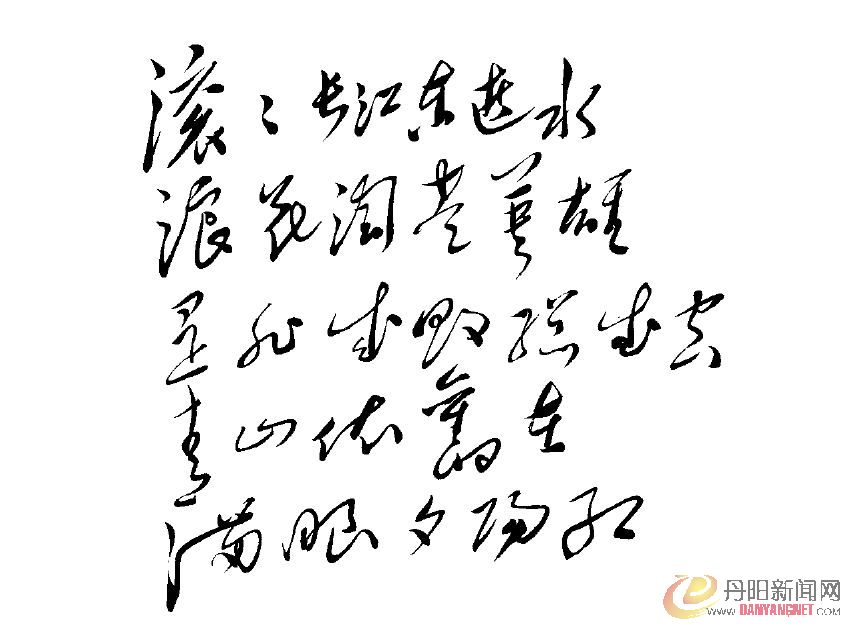 滚〻长江东逝水
浪花淘尽英雄
是非成败總成空
青山依舊在
满眼夕阳红
丹阳新闻网
WWW.DANYANGNET.COM